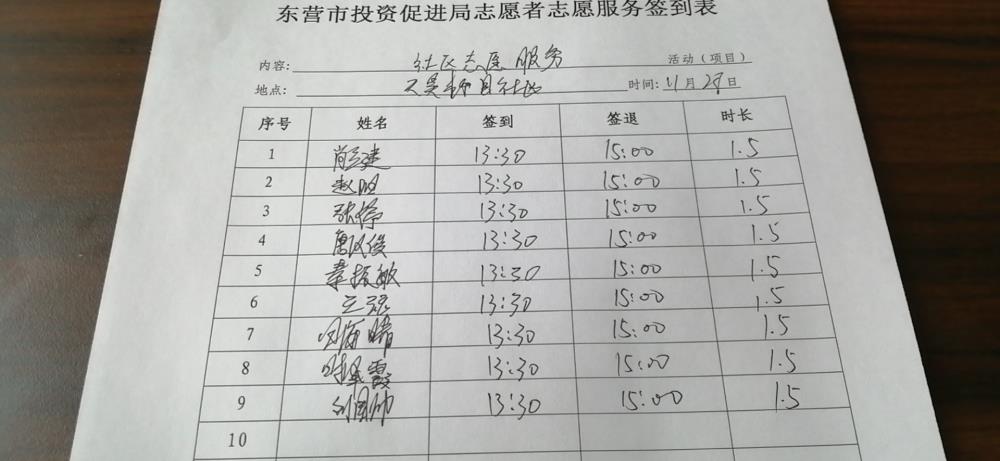 东营市投资促进局志愿者志愿服务签到表
内容: 社区志愿服务 活动（项目）
地点: 社区 时间: 11月29日
序号 姓名 签到 签退 时长
1 13:30 15:00 1.5
2 赵明 13:30 15:00 1.5
3 张婷 13:30 15:00 1.5
4 13:30 15:00 1.5
5 13:30 15:00 1.5
6 13:30 15:00 1.5
7 13:30 15:00 1.5
8 13:30 15:00 1.5
9 刘国帅 13:30 15:00 1.5
10